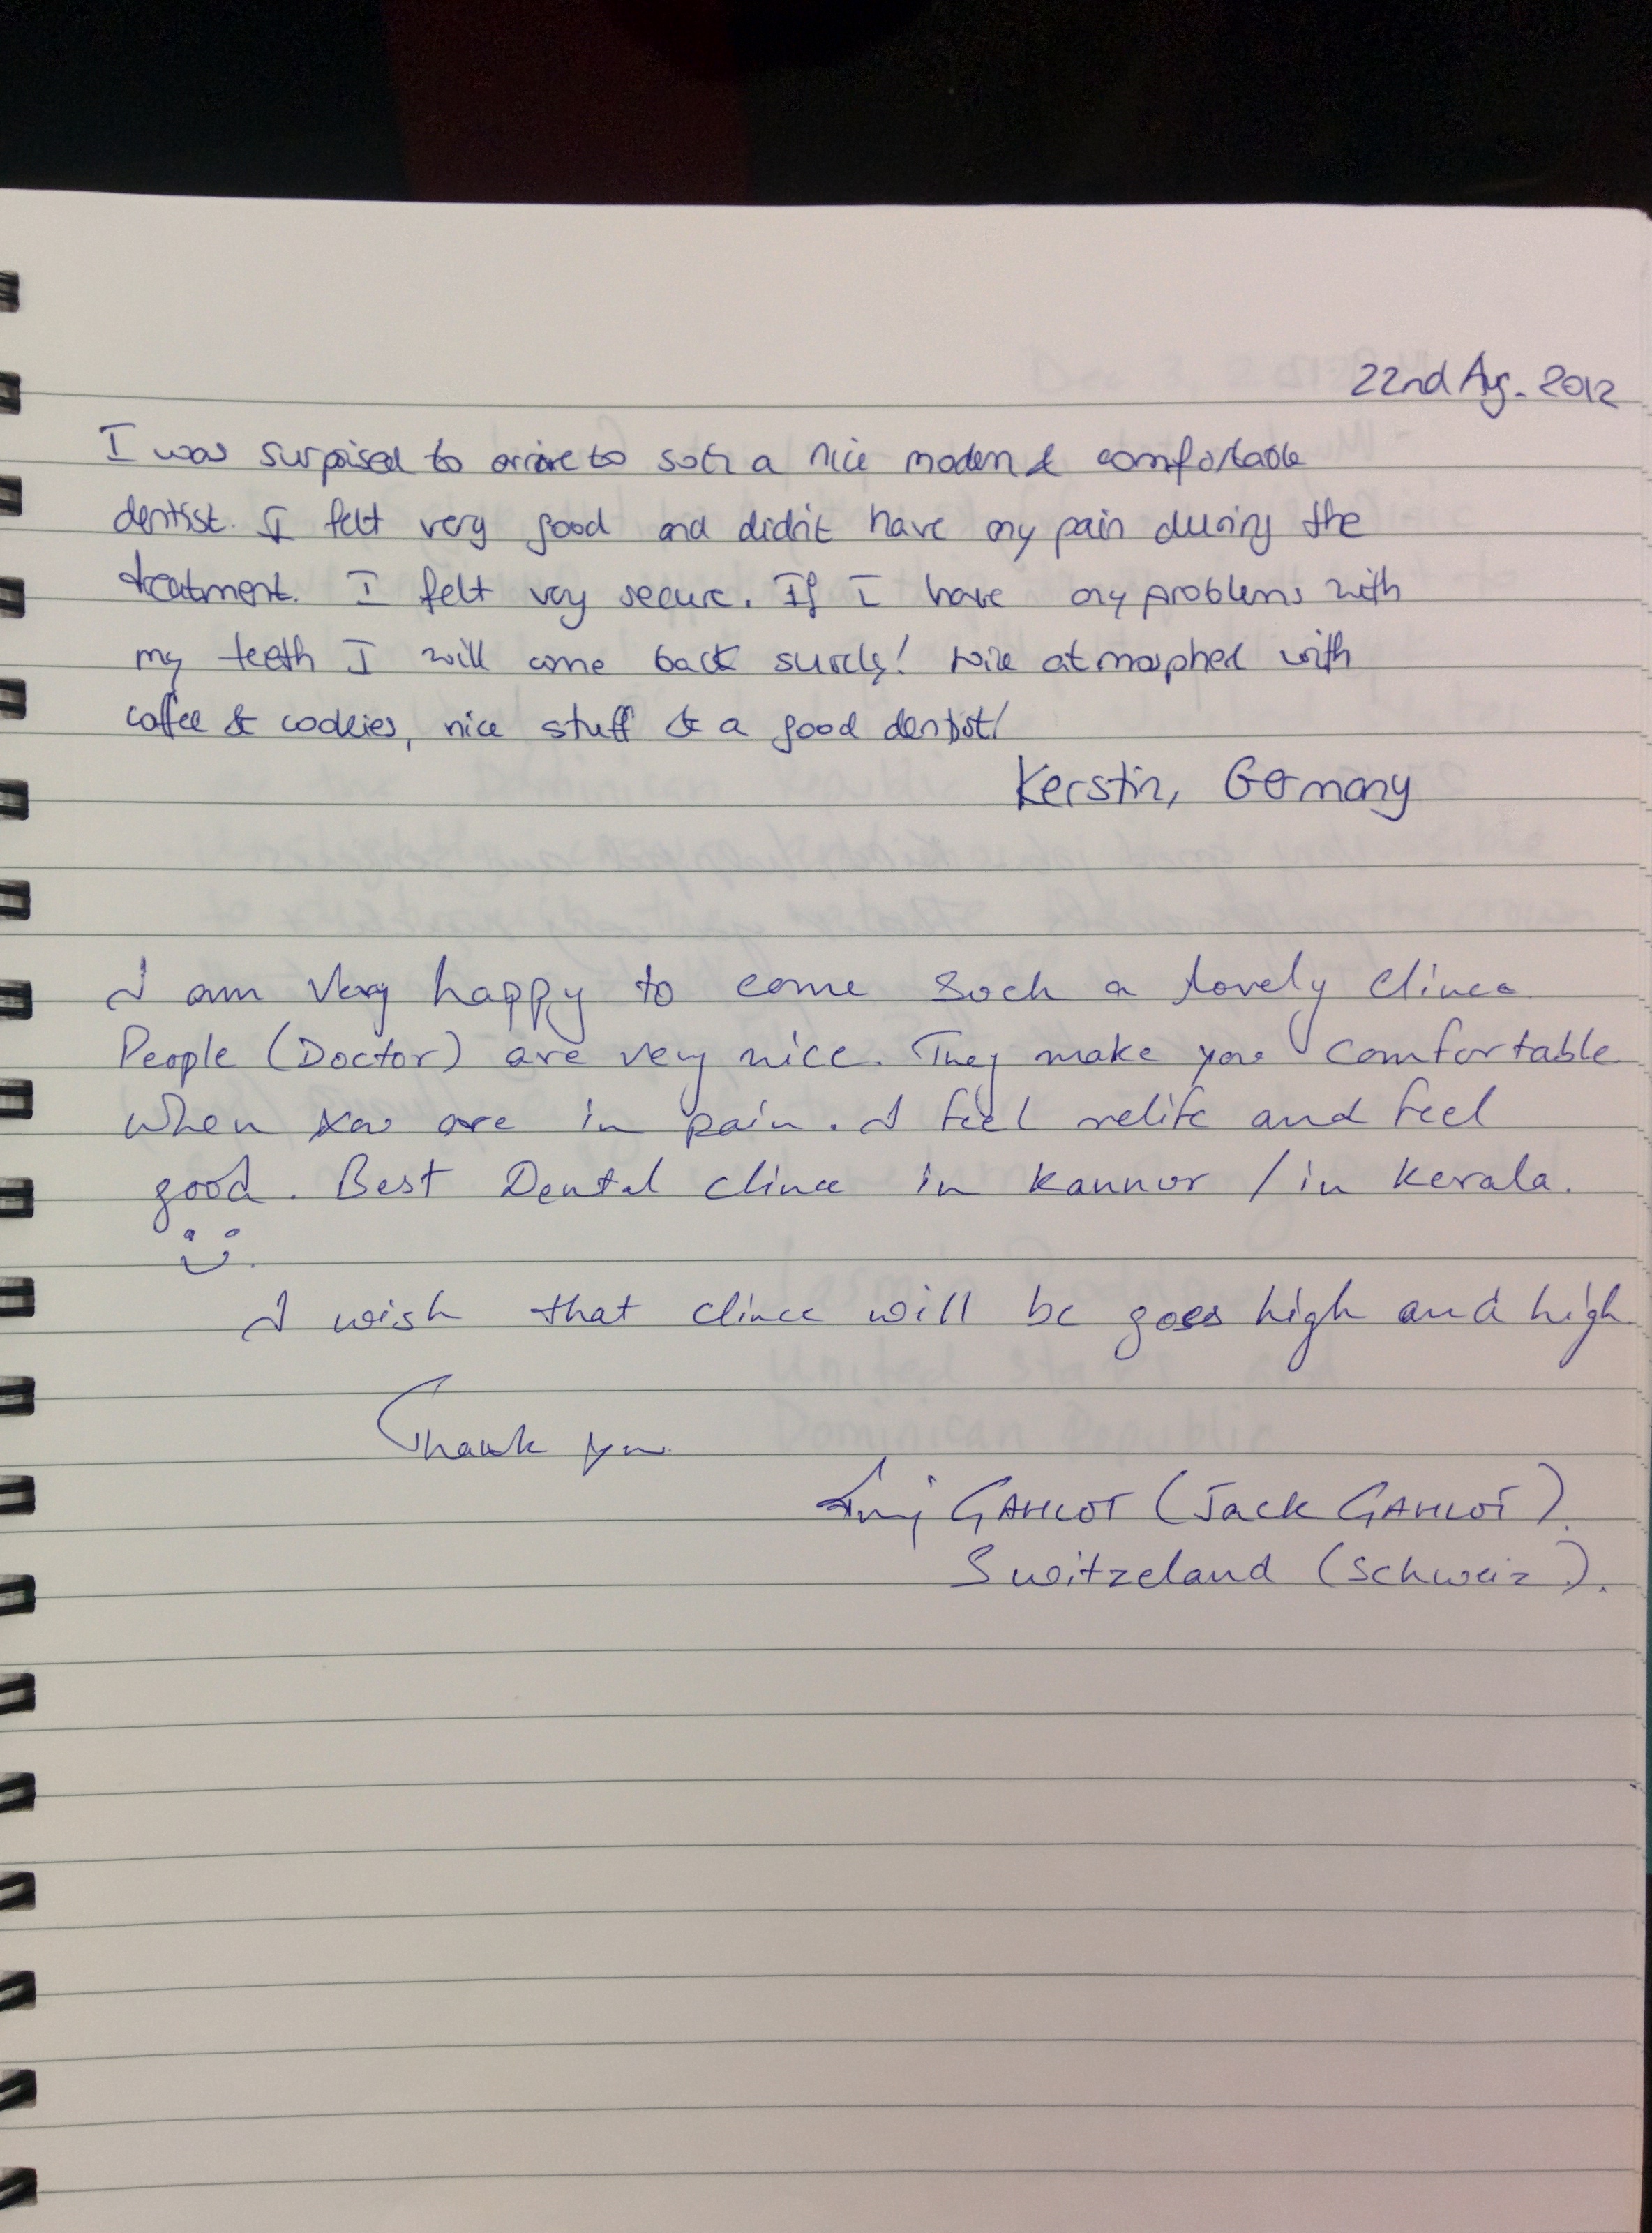 22nd Aug. 2012
I was surprised to arrive to such a nice modern & comfortable
dentist. I felt very good and didn't have any pain during the
treatment. I felt very secure. If I have any problems with
my teeth I will come back surely! Nice atmosphel with
coffee & cookies, nice stuff & a good dentist!
Kerstin, Germany
I am very happy to come such a lovely clince
People (Doctor) are very nice. They make you comfortable
when you are in pain. I feel relife and feel
good. Best Dental clince in kannur / in Kerala.
I wish that clince will be goes high and high.
Thank you
GAHLOT (Jack GAHLOT).
Switzeland (Schweiz).